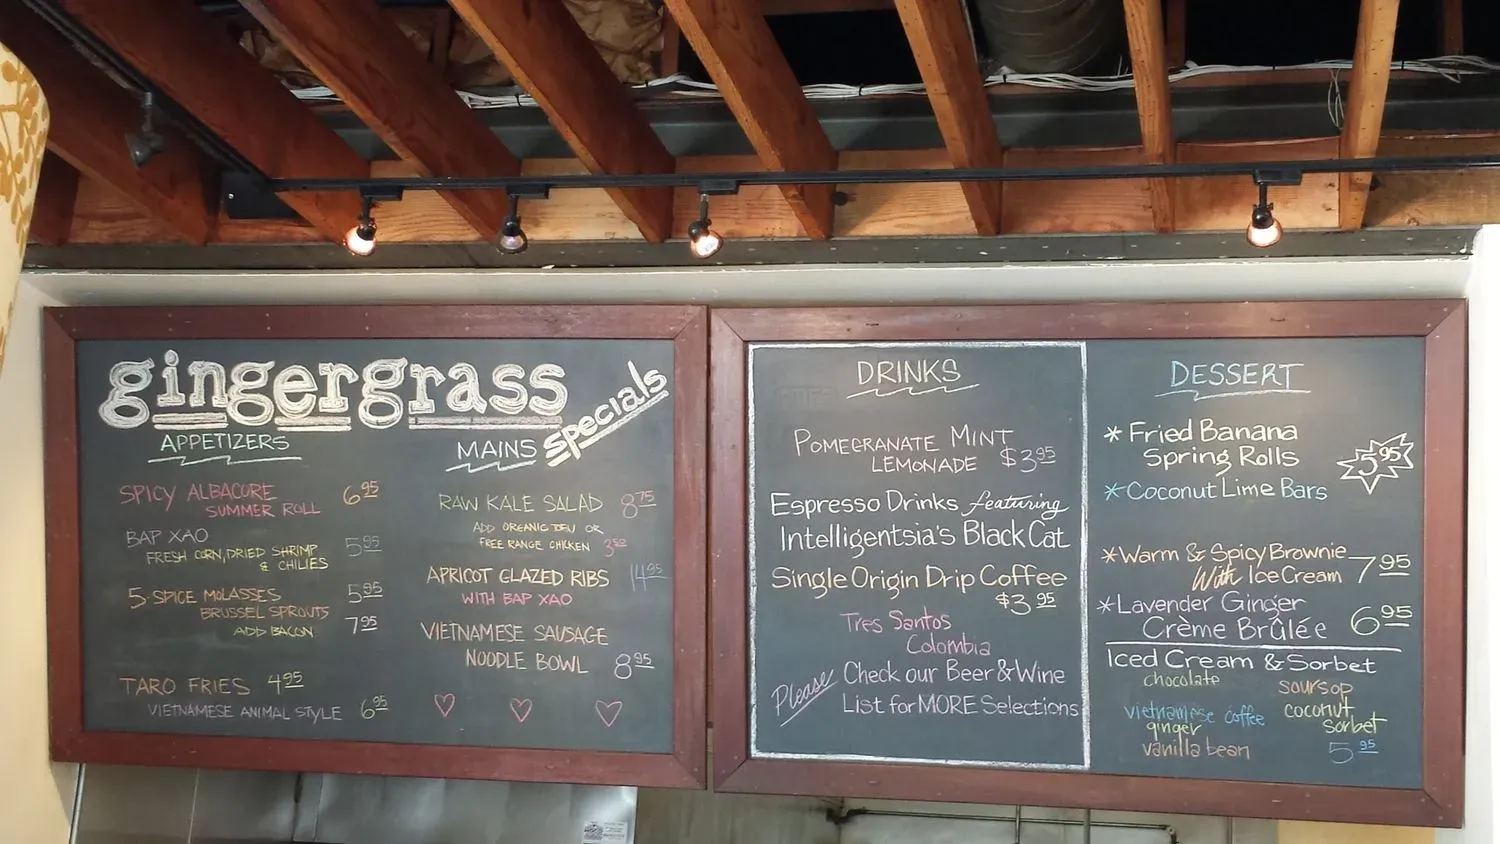 gingergrass
specials
APPETIZERS
SPICY ALBACORE 6.95
SUMMER ROLL
BAP XAO 5.95
FRESH CORN, DRIED SHRIMP
& CHILIES
5-SPICE MOLASSES 5.95
BRUSSEL SPROUTS
ADD BACON 7.95
TARO FRIES 4.95
VIETNAMESE ANIMAL STYLE 6.95
MAINS
RAW KALE SALAD 8.75
ADD ORGANIC TOFU OR
FREE RANGE CHICKEN 3.50
APRICOT GLAZED RIBS 14.95
WITH BAP XAO
VIETNAMESE SAUSAGE
NOODLE BOWL 8.95
DRINKS
POMEGRANATE MINT
LEMONADE $3.95
Espresso Drinks featuring
Intelligentsia's Black Cat
Single Origin Drip Coffee
$3.95
Tres Santos
Colombia
Please Check our Beer & Wine
List for MORE Selections
DESSERT
* Fried Banana
Spring Rolls 5.95
* Coconut Lime Bars
* Warm & Spicy Brownie
With Ice Cream 7.95
* Lavender Ginger
Crème Brûlée 6.95
Iced Cream & Sorbet
chocolate
vietnamese coffee
ginger
vanilla bean
soursop
coconut
sorbet
5.95